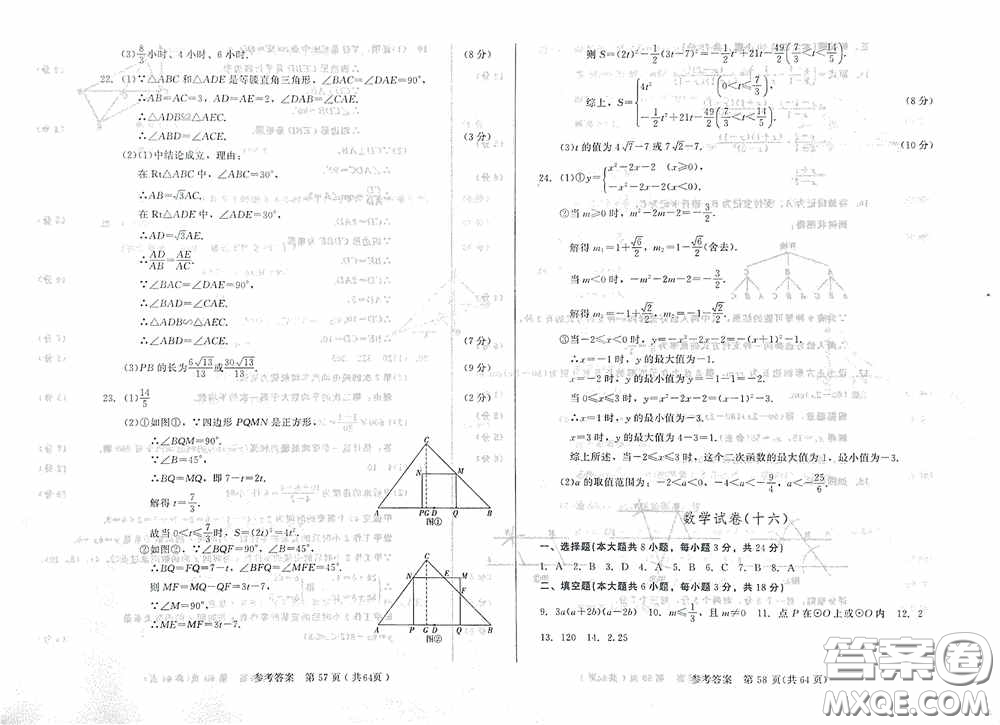 (3)8/3小时、4小时、6小时. (8分)
22. (1)∵△ABC和△ADE是等腰直角三角形,∠BAC=∠DAE=90°,
∴AB=AC=3,AD=AE=2,∠DAB=∠CAE.
∴△ADB≌△AEC.
∴∠ABD=∠ACE. (3分)
(2)(1)中结论成立,理由:
在Rt△ABC中,∠ABC=30°,
∴AB=√3AC.
在Rt△ADE中,∠ADE=30°,
∴AD=√3AE.
∴AD/AB=AE/AC.
∵∠BAC=∠DAE=90°,
∴∠BAD=∠CAE.
∴△ADB∽△AEC.
∴∠ABD=∠ACE. (7分)
(3)PB的长为6√13/13或30√13/13. (9分)
23. (1)14/5 (2分)
(2)①如图①,∵四边形PQMN是正方形,
∴∠BQM=90°.
∵∠B=45°,
∴BQ=MQ,即7-t=2t.
解得t=7/3.
故当0<t≤7/3时,S=(2t)²=4t².
②如图②,∵∠BQF=90°,∠B=45°,
∴BQ=FQ=7-t,∠BFQ=∠MFE=45°.
则MF=MQ-QF=3t-7.
∵∠M=90°,
∴ME=MF=3t-7.
C
N M
A PG D Q B
图①
C
N E M
F
A P G D Q B
图②
参考答案 第57页(共64页)
则S=(2t)²-1/2(3t-7)²=-1/2t²+21t-49/2(7/3<t<14/5).
综上,S={4t² (0<t≤7/3)
-1/2t²+21t-49/2(7/3<t<14/5). (8分)
(3)t的值为4√7-7或7√2-7. (10分)
24. (1)①y={x²-2x-2 (x≥0).
-x²-2x-2(x<0).
②当m≥0时,m²-2m-2=-3/2.
解得m₁=1+√6/2,m₂=1-√6/2(舍去).
当m<0时,-m²-2m-2=-3/2.
解得m₁=-1+√2/2,m₂=-1-√2/2.
③当-2≤x<0时,y=-x²-2x-2=-(x+1)²-1.
∴x=-1时,y的最大值为-1.
当x=-2时,y的最小值为-1-1=-2.
当0≤x≤3时,y=x²-2x-2=(x-1)²-3.
∴x=1时,y的最小值为-3.
当x=3时,y的最大值为4-3=1.
综上所述,当-2≤x≤3时,这个二次函数的最大值为1,最小值为-3.
(2)a的取值范围为:-2<a<0,-4<a<-9/4,a<-25/6.
数学试卷(十六)
一、选择题(本大题共8小题,每小题3分,共24分)
1. A 2. B 3. D 4. A 5. B 6. C 7. B 8. A
二、填空题(本大题共6小题,每小题3分,共18分)
9. 3a(a+2b)(a-2b) 10. m≤1/3,且m≠0 11. 点P在⊙O上或⊙O内 12. 2
13. 120 14. 2.25
参考答案 第58页(共64页)
答案圈
MXQE.COM